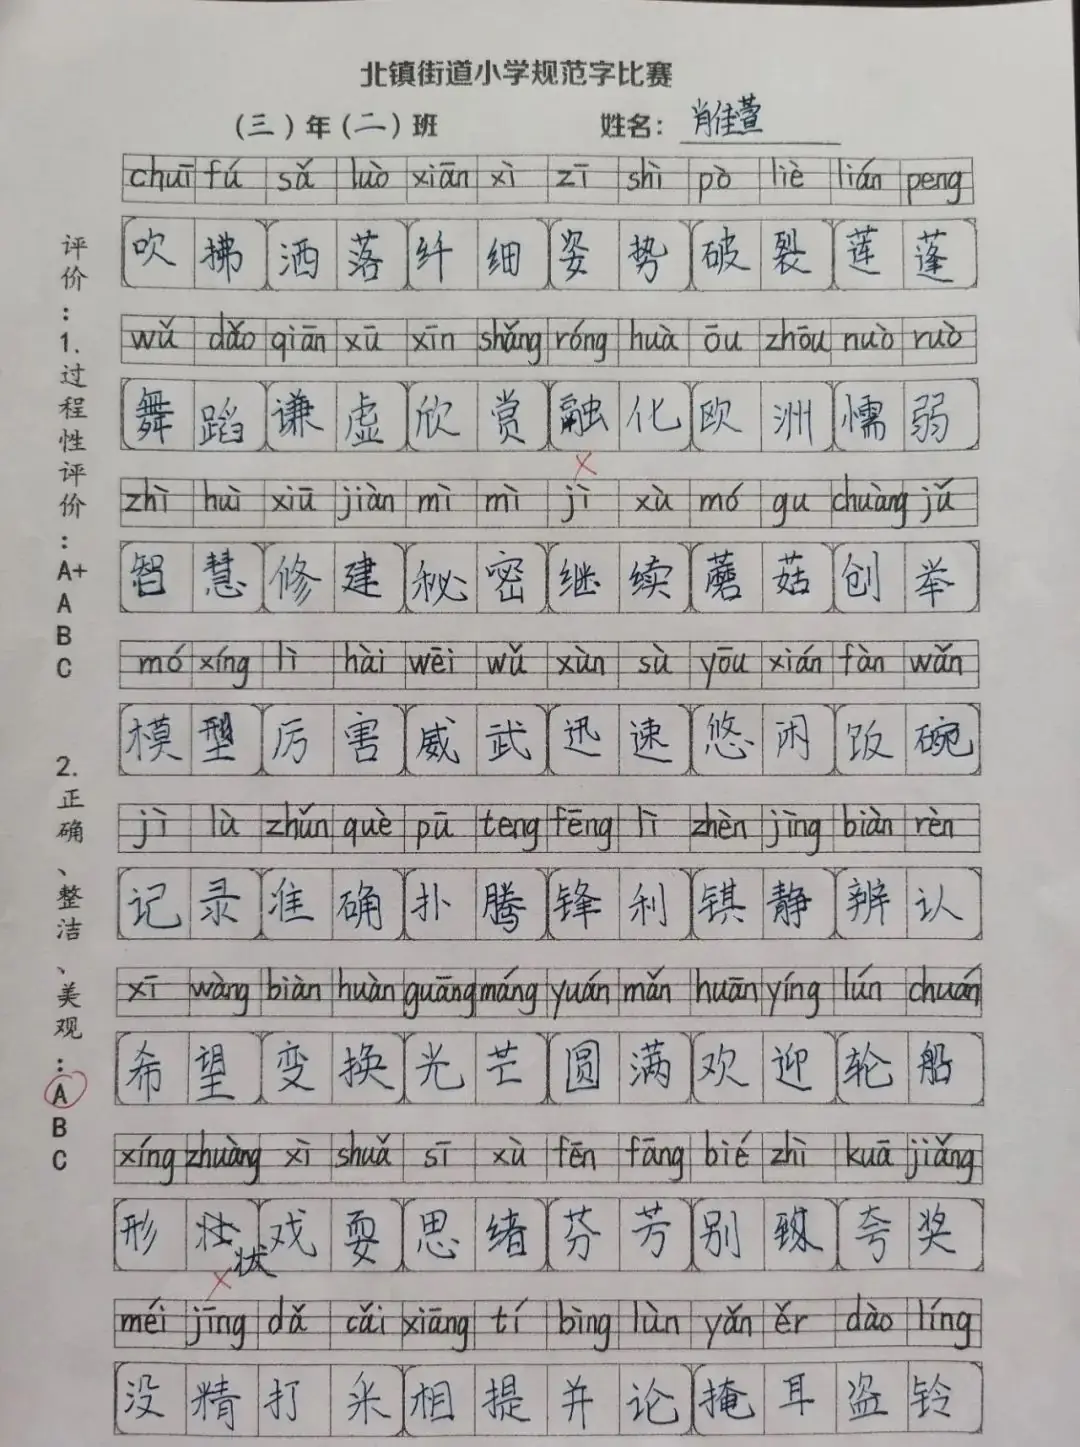 北镇街道小学规范字比赛
(三)年(二)班 姓名：肖佳萱
chuī fú sǎ luò xiān xì zī shì pò liè lián peng
吹拂洒落纤细姿势破裂莲蓬
wǔ dǎo qiān xū xīn shǎng róng huà ōu zhōu nuò ruò
舞蹈谦虚欣赏融化欧洲懦弱
zhì huì xiū jiàn mì mì jì xù mó gu chuàng jǔ
智慧修建秘密继续蘑菇创举
mó xíng lì hài wēi wǔ xùn sù yōu xián fàn wǎn
模型厉害威武迅速悠闲饭碗
jì lù zhǔn què pū teng fēng lì zhèn jìng biàn rèn
记录准确扑腾锋利镇静辨认
xī wàng biàn huàn guāng máng yuán mǎn huān yíng lún chuán
希望变换光芒圆满欢迎轮船
xíng zhuàng xì shuǎ sī xù fēn fāng bié zhì kuā jiǎng
形壮状戏耍思绪芬芳别致夸奖
méi jīng dǎ cǎi xiāng tí bìng lùn yǎn ěr dào líng
没精打采相提并论掩耳盗铃
评价：1.过程性评价：A+ A B C 2.正确、整洁、美观：A B C